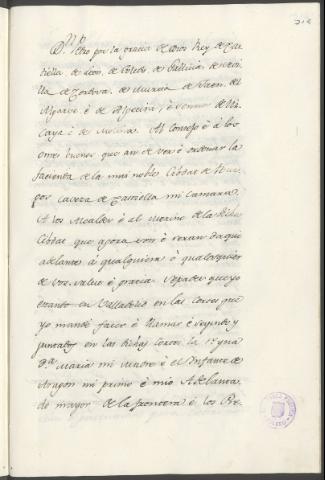 Dn. Pedro por la gracia de Dios Rey de Cas-
tiella, de Leon, de Toledo, de Gallicia, de Sevi-
lla, de Cordova, de Murcia, de Jaen, del
Algarve, è de Algecira, è Sennor de Viz-
caya è de Molina. Al Concejo è à los
omes buenos que an de ver è ordenar la
facienda de la mui noble Cibdat de Burgos
caveza de Castiella mi Camara.
A los Alcaldes è al Merino de la dicha
Cibdat que agora son è seran daqui
adelante à qualquiera è qualesquier
de vos, salud è gracia. Sepades que yo
estando en Valladolid en las Cortes que
yo mandé facer è llamar è seyendo y
juntados en las dichas Cortes la Reyna
Dª. Maria mi Madre è el Infante de
Aragon mi primo è mio Adelanta-
do mayor de la frontera è los Pe-